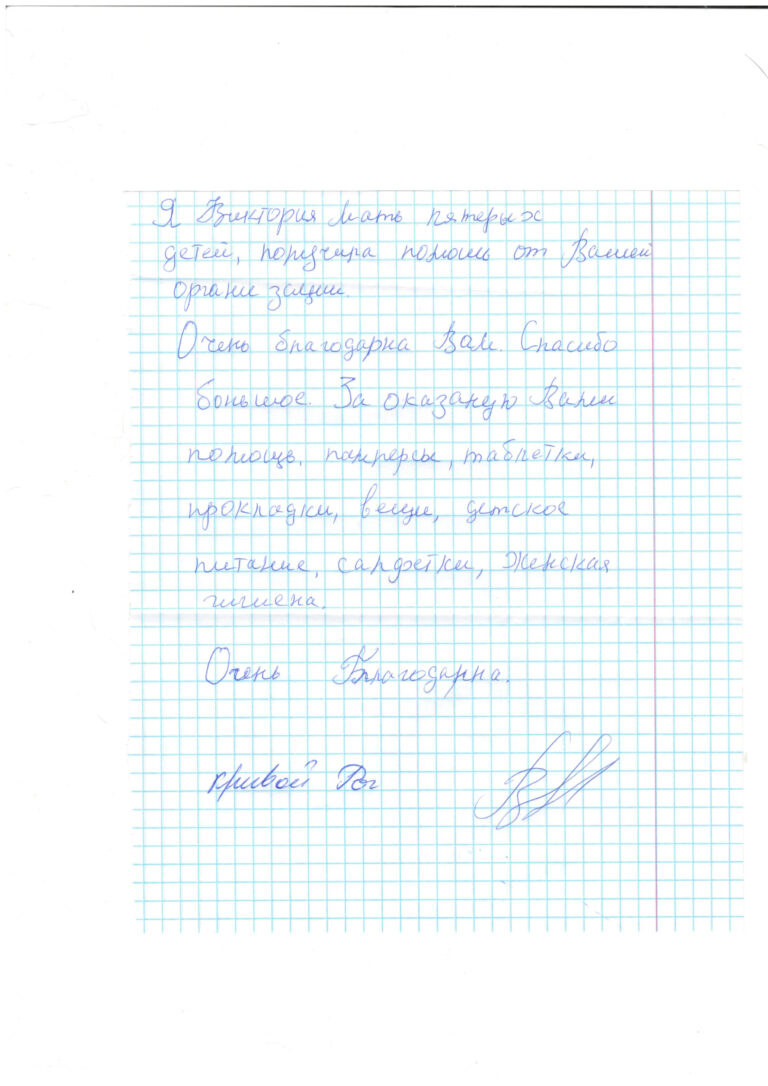 Я Виктория Мать пятерых
детей, получила помошь от Вашей
органи зации.
Очень благодарна Вам. Спасибо
большое. За оказаную Вами
помощь, памперсы, таблетки,
прокладки, вещи, детское
питание, салфетки, женская
гигиена.
Очень Благодарна.
Кривой Рог